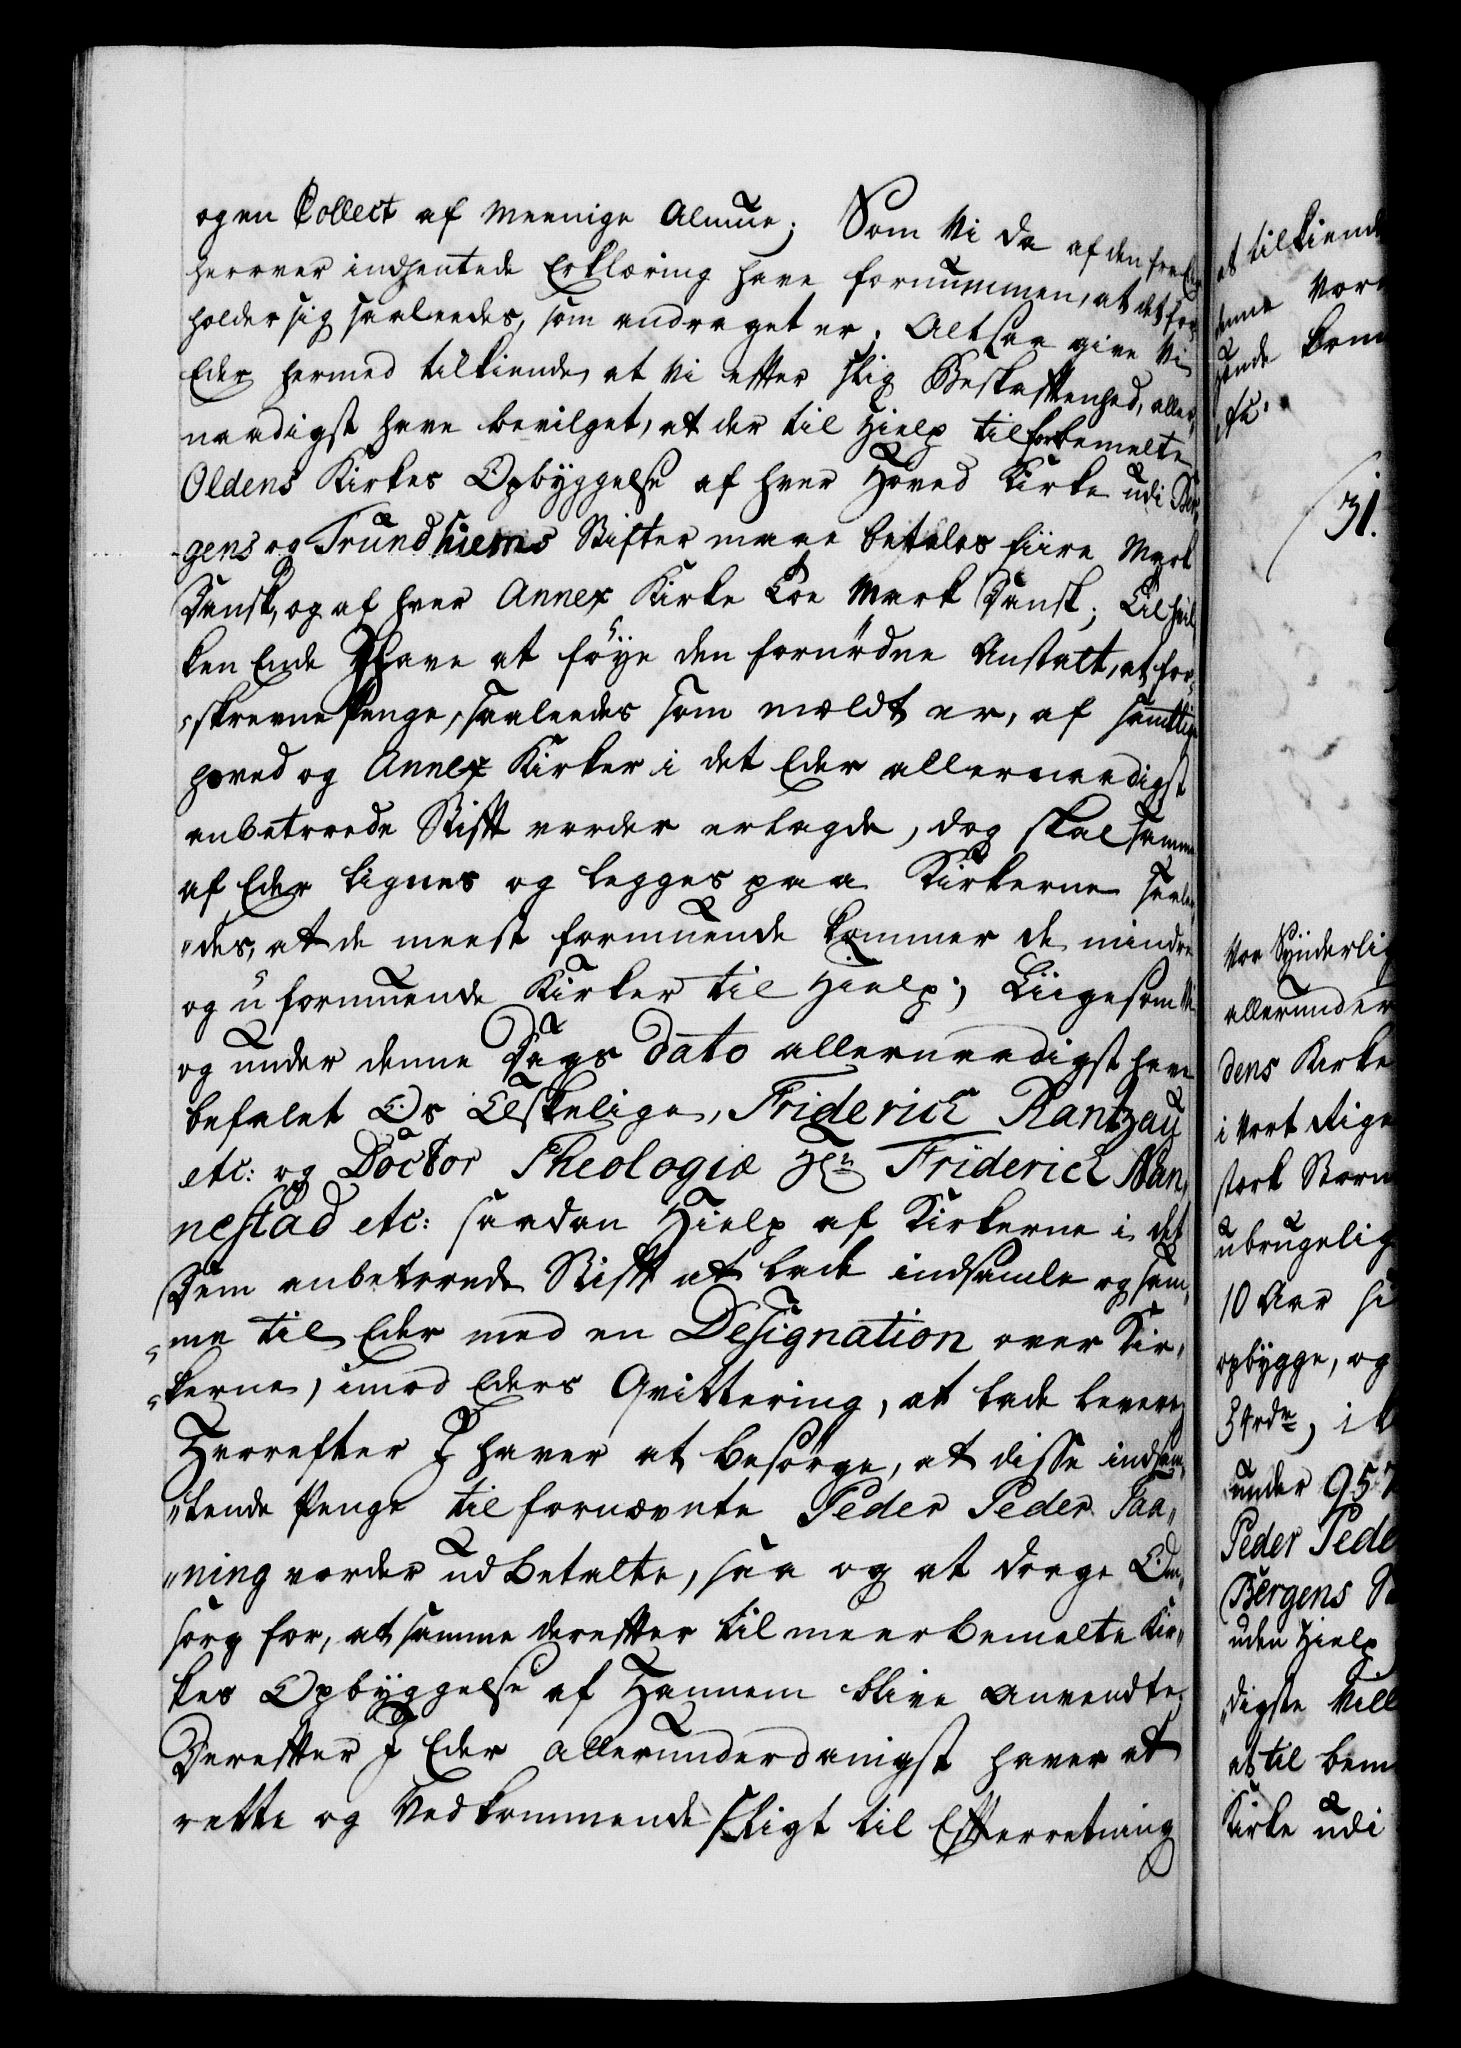 og en Collect af meenige Almue; Som Vi da af den fra Eder
herover indhentede Erklæring have fornummen, at det for¬
holder sig saaleedes, som andraget er; Altsaa give Vi
Eder hermed tilkiende, at Vi efter slig Beskaffenhed, aller¬
naadigst have bevilget, at der til Hielp til forbemelte
Oldens Kirkes Opbyggelse af hver Hoved Kirke udi Ber¬
gens og Trundhiems Stifter maae betales fiire Mark
Dansk, og af hver Annex Kirke Toe Mark Dansk; Til hvil¬
ken Ende I have at föye den fornødne Anstalt, at for¬
skrevne Penge, saaleedes som mældt er, af samtlige
hoved og Annex Kirker i det Eder allernaadigst
anbetroede Stift vorder erlagde, dog skal samme
af Eder lignes og legges paa Kirkerne saalee¬
des, at de meest formuende kommer de mindre
og uformuende Kirker til Hielp; Liigesom Vi
og under denne Dags Dato allernaadigst have
befalet Os Elskelige, Friderich Rantzau
etc: og Doctor Theologiæ Hr Friderich Nan¬
nestad etc: saadan Hielp af Kirkerne i det
Dem anbetroede Stift at lade indsamle og sam¬
me til Eder med en Designation over Kir¬
kerne, imod Eders Qvittering, at lade levere;
Herefter I haver at besørge, at disse indsam¬
lende Penge til fornævnte Peder Peders. Faa¬
ning vorder udbetalte, saa og at drage Om¬
sorg for, at samme derefter til meerbemelte Kir¬
kes Opbyggelse af Hannem blive anvendte;
Derefter I Eder allerunderdanigst haver at
rette og Vedkommende sligt til Efterretning
at tilkiende
denne Vor
31.
Vor Synderlig
allerunder
dens Kirke
i Vort Rige
sterk Storm
ubrugelig
10 Aar si
opbygge, og
under 957
Peder Pede
Bergens St
uden Hielp
digste Vill
at til bem
Kirke udi